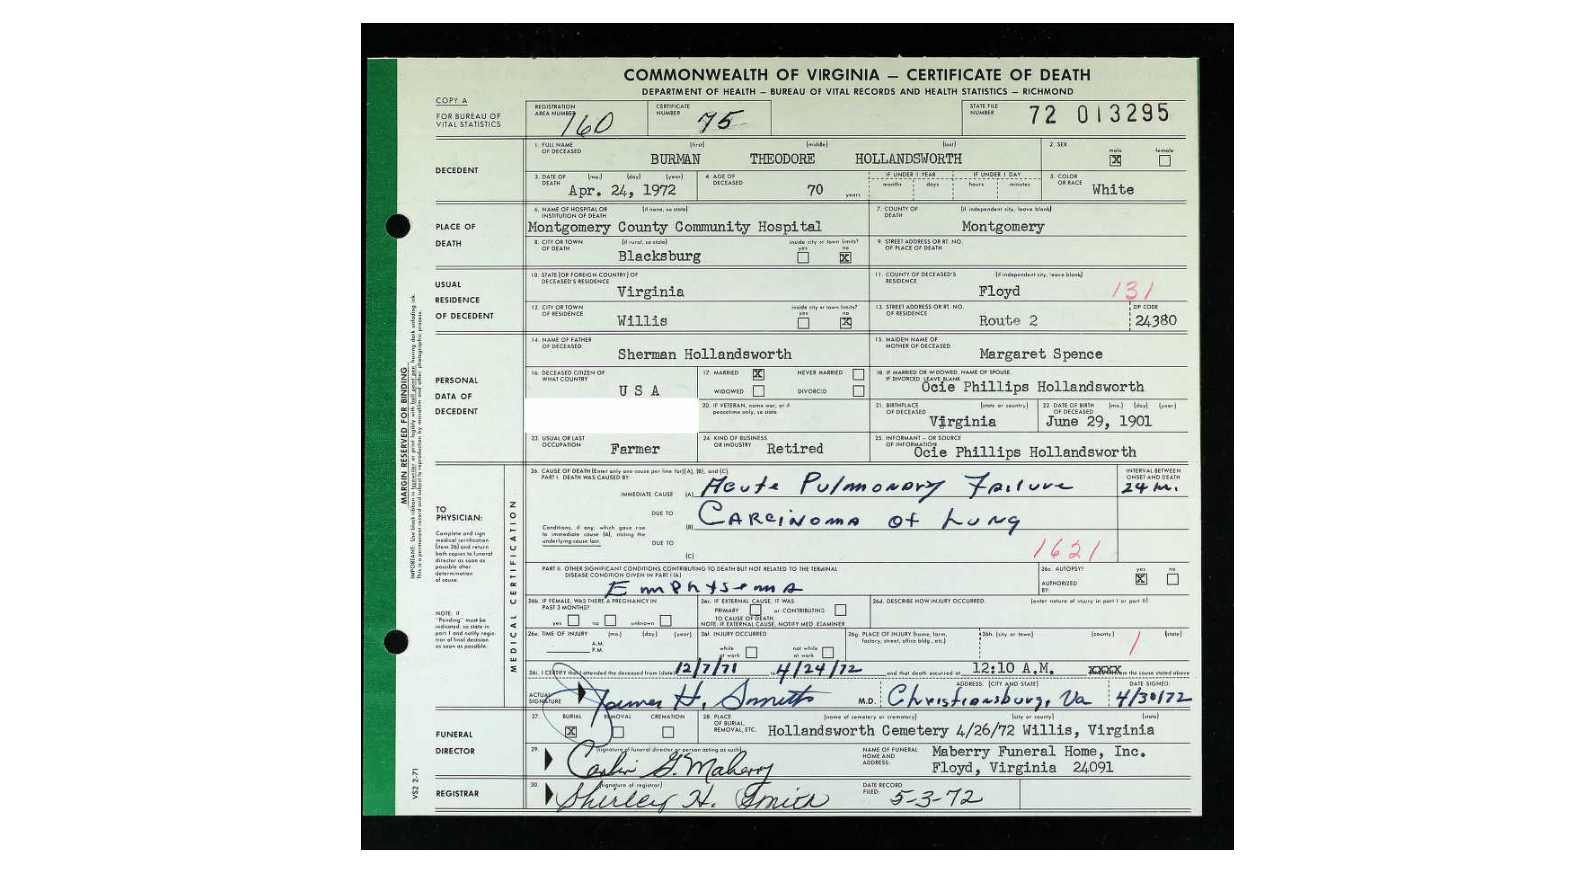 COMMONWEALTH OF VIRGINIA — CERTIFICATE OF DEATH
DEPARTMENT OF HEALTH — BUREAU OF VITAL RECORDS AND HEALTH STATISTICS — RICHMOND
COPY A
FOR BUREAU OF VITAL STATISTICS
REGISTRATION AREA NUMBER 160
CERTIFICATE NUMBER 75
STATE FILE NUMBER 72 013295
DECEDENT
1. FULL NAME OF DECEASED (first) (middle) (last)
BURMAN THEODORE HOLLANDSWORTH
2. SEX male X female
3. DATE OF DEATH (mo.) (day) (year)
Apr. 24, 1972
4. AGE OF DECEASED 70 years
IF UNDER 1 YEAR months days
IF UNDER 1 DAY hours minutes
5. COLOR OR RACE White
PLACE OF DEATH
6. NAME OF HOSPITAL OR INSTITUTION OF DEATH (if none, so state)
Montgomery County Community Hospital
7. COUNTY OF DEATH (if independent city, leave blank)
Montgomery
8. CITY OR TOWN OF DEATH (if rural, so state)
Blacksburg
inside city or town limits? yes no X
9. STREET ADDRESS OR RT. NO. OF PLACE OF DEATH
USUAL RESIDENCE OF DECEDENT
10. STATE (OR FOREIGN COUNTRY) OF DECEASED'S RESIDENCE
Virginia
11. COUNTY OF DECEASED'S RESIDENCE (if independent city, leave blank)
Floyd 131
12. CITY OR TOWN OF RESIDENCE
Willis
inside city or town limits? yes no X
13. STREET ADDRESS OR RT. NO. OF RESIDENCE
Route 2
ZIP CODE 24380
PERSONAL DATA OF DECEDENT
14. NAME OF FATHER OF DECEASED
Sherman Hollandsworth
15. MAIDEN NAME OF MOTHER OF DECEASED
Margaret Spence
16. DECEASED CITIZEN OF WHAT COUNTRY
U S A
17. MARRIED X NEVER MARRIED
WIDOWED DIVORCED
18. IF MARRIED OR WIDOWED, NAME OF SPOUSE. IF DIVORCED, LEAVE BLANK
Ocie Phillips Hollandsworth
20. IF VETERAN, name war, or if peacetime only, so state
21. BIRTHPLACE OF DECEASED (state or country)
Virginia
22 DATE OF BIRTH OF DECEASED (mo.) (day) (year)
June 29, 1901
23. USUAL OR LAST OCCUPATION
Farmer
24. KIND OF BUSINESS OR INDUSTRY
Retired
25. INFORMANT — OR SOURCE OF INFORMATION
Ocie Phillips Hollandsworth
MARGIN RESERVED FOR BINDING
MEDICAL CERTIFICATION
TO PHYSICIAN:
Complete and sign medical certification (item 26) and return both copies to funeral director as soon as possible after determination of cause.
NOTE: If "Pending" must be indicated, so state in part I and notify registrar of final decision as soon as possible.
26. CAUSE OF DEATH (Enter only one cause per line for (A), (B), and (C)
PART I. DEATH WAS CAUSED BY:
IMMEDIATE CAUSE (A) Acute Pulmonary Failure
INTERVAL BETWEEN ONSET AND DEATH
DUE TO (B) Carcinoma of Lung
Conditions, if any, which gave rise to immediate cause (A), stating the underlying cause last.
DUE TO (C)
1621
PART II. OTHER SIGNIFICANT CONDITIONS CONTRIBUTING TO DEATH BUT NOT RELATED TO THE TERMINAL DISEASE CONDITION GIVEN IN PART I (A)
Emphysema
26a. AUTOPSY? yes X no
AUTHORIZED BY:
26b. IF FEMALE, WAS THERE A PREGNANCY IN PAST 3 MONTHS?
yes no unknown
26c. IF EXTERNAL CAUSE, IT WAS
PRIMARY or CONTRIBUTING
TO CAUSE OF DEATH
NOTE: IF EXTERNAL CAUSE, NOTIFY MED. EXAMINER
26d. DESCRIBE HOW INJURY OCCURRED. (enter nature of injury in part I or part II)
26e. TIME OF INJURY (mo.) (day) (year)
A.M. P.M.
26f. INJURY OCCURRED
while at work not while at work
26g. PLACE OF INJURY (home, farm, factory, street, office bldg., etc.)
26h. (city or town) (county) (state)
1
26i. I CERTIFY that I attended the deceased from (date) 12/7/71 to 4/24/72 and that death occurred at 12:10 A.M. XXXX from the cause stated above
ACTUAL SIGNATURE M.D.
ADDRESS: (CITY AND STATE) Christiansburg, Va
DATE SIGNED: 4/30/72
FUNERAL DIRECTOR
27. BURIAL X REMOVAL CREMATION
28. PLACE OF BURIAL, REMOVAL, ETC. (name of cemetery or crematory) (city or county) (state)
Hollandsworth Cemetery 4/26/72 Willis, Virginia
29. (signature of funeral director or person acting as such)
NAME OF FUNERAL HOME AND ADDRESS:
Maberry Funeral Home, Inc.
Floyd, Virginia 24091
REGISTRAR
30. (signature of registrar)
Shirley H. Smith
DATE RECORD FILED: 5-3-72
VS2 2-71